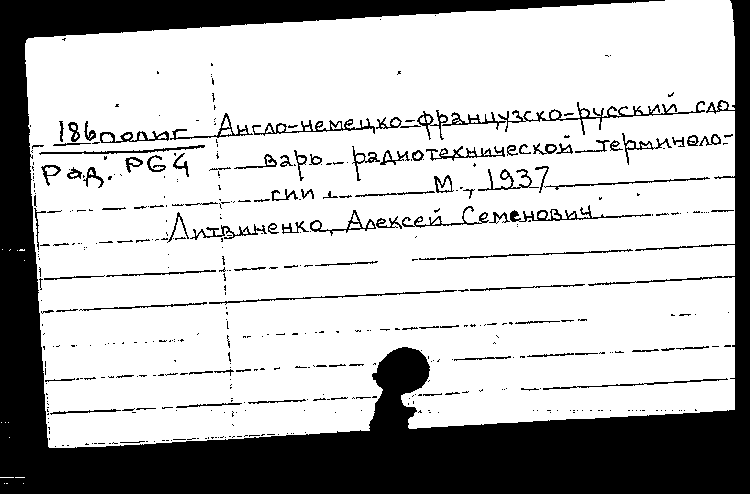 186полиг Англо-немецко-французско-русский сло-
Рад. РG4 варь радиотехнической терминоло-
гии. М., 1937.
Литвиненко, Алексей Семенович.